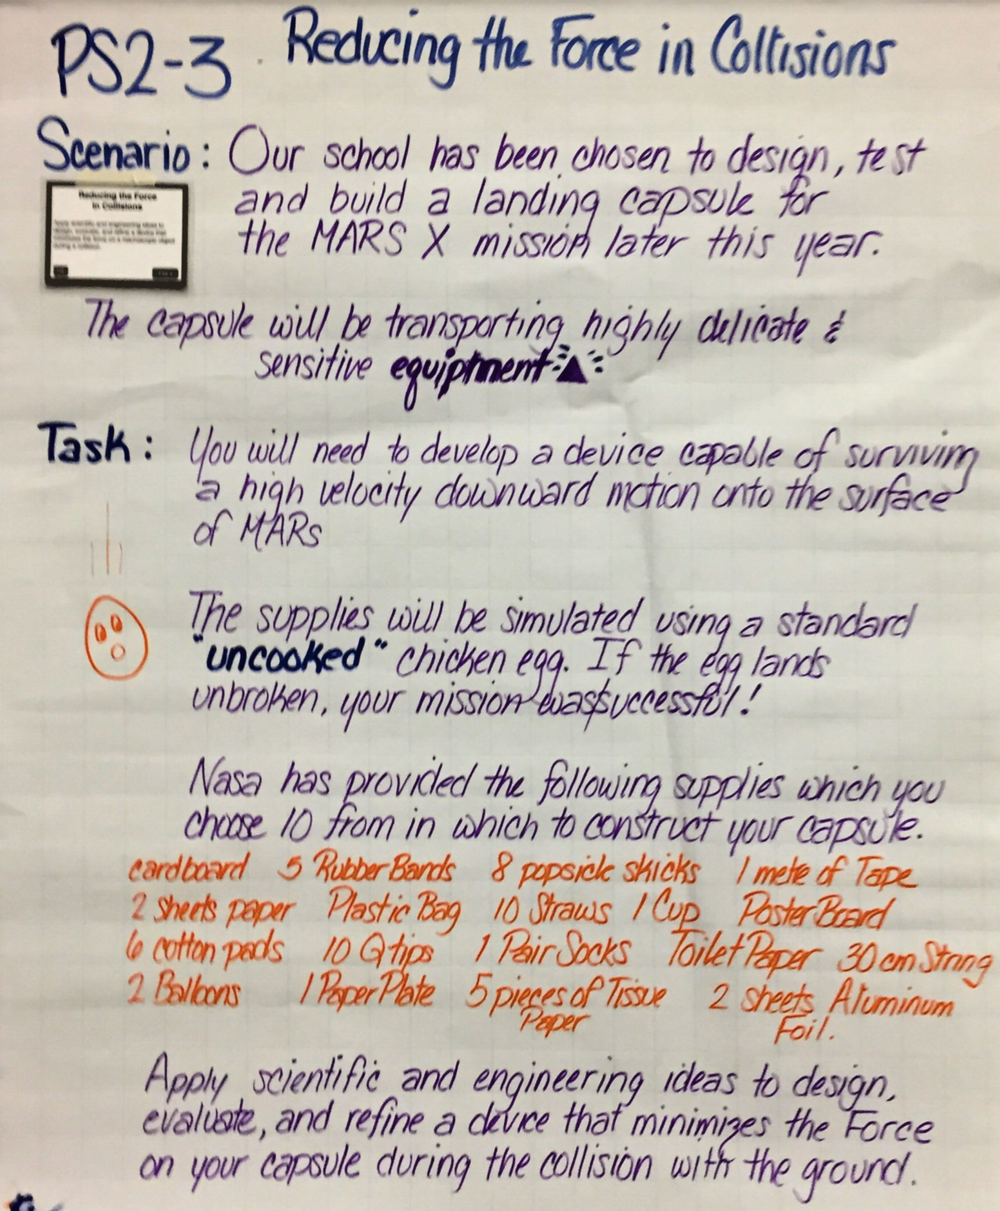 PS2-3. Reducing the Force in Collisions
Scenario: Our school has been chosen to design, test
and build a landing capsule for
the MARS X mission later this year.
Reducing the Force
in Collisions
The capsule will be transporting highly delicate &
sensitive equiptment
Task: You will need to develop a device capable of surviving
a high velocity downward motion onto the surface
of MARs
The supplies will be simulated using a standard
"uncooked" chicken egg. If the egg lands
unbroken, your mission was successful!
Nasa has provided the following supplies which you
choose 10 from in which to construct your capsule.
cardboard 5 Rubber Bands 8 popsick skicks 1 mete of Tape
2 sheets paper Plastic Bag 10 Straws 1 Cup Poster Board
6 cotton pads 10 Q tips 1 Pair Socks Toilet Paper 30 cm String
2 Balloons 1 Paper Plate 5 pieces of Tissue 2 sheets Aluminum
Paper Foil.
Apply scientific and engineering ideas to design,
evaluate, and refine a device that minimizes the Force
on your capsule during the collision with the ground.